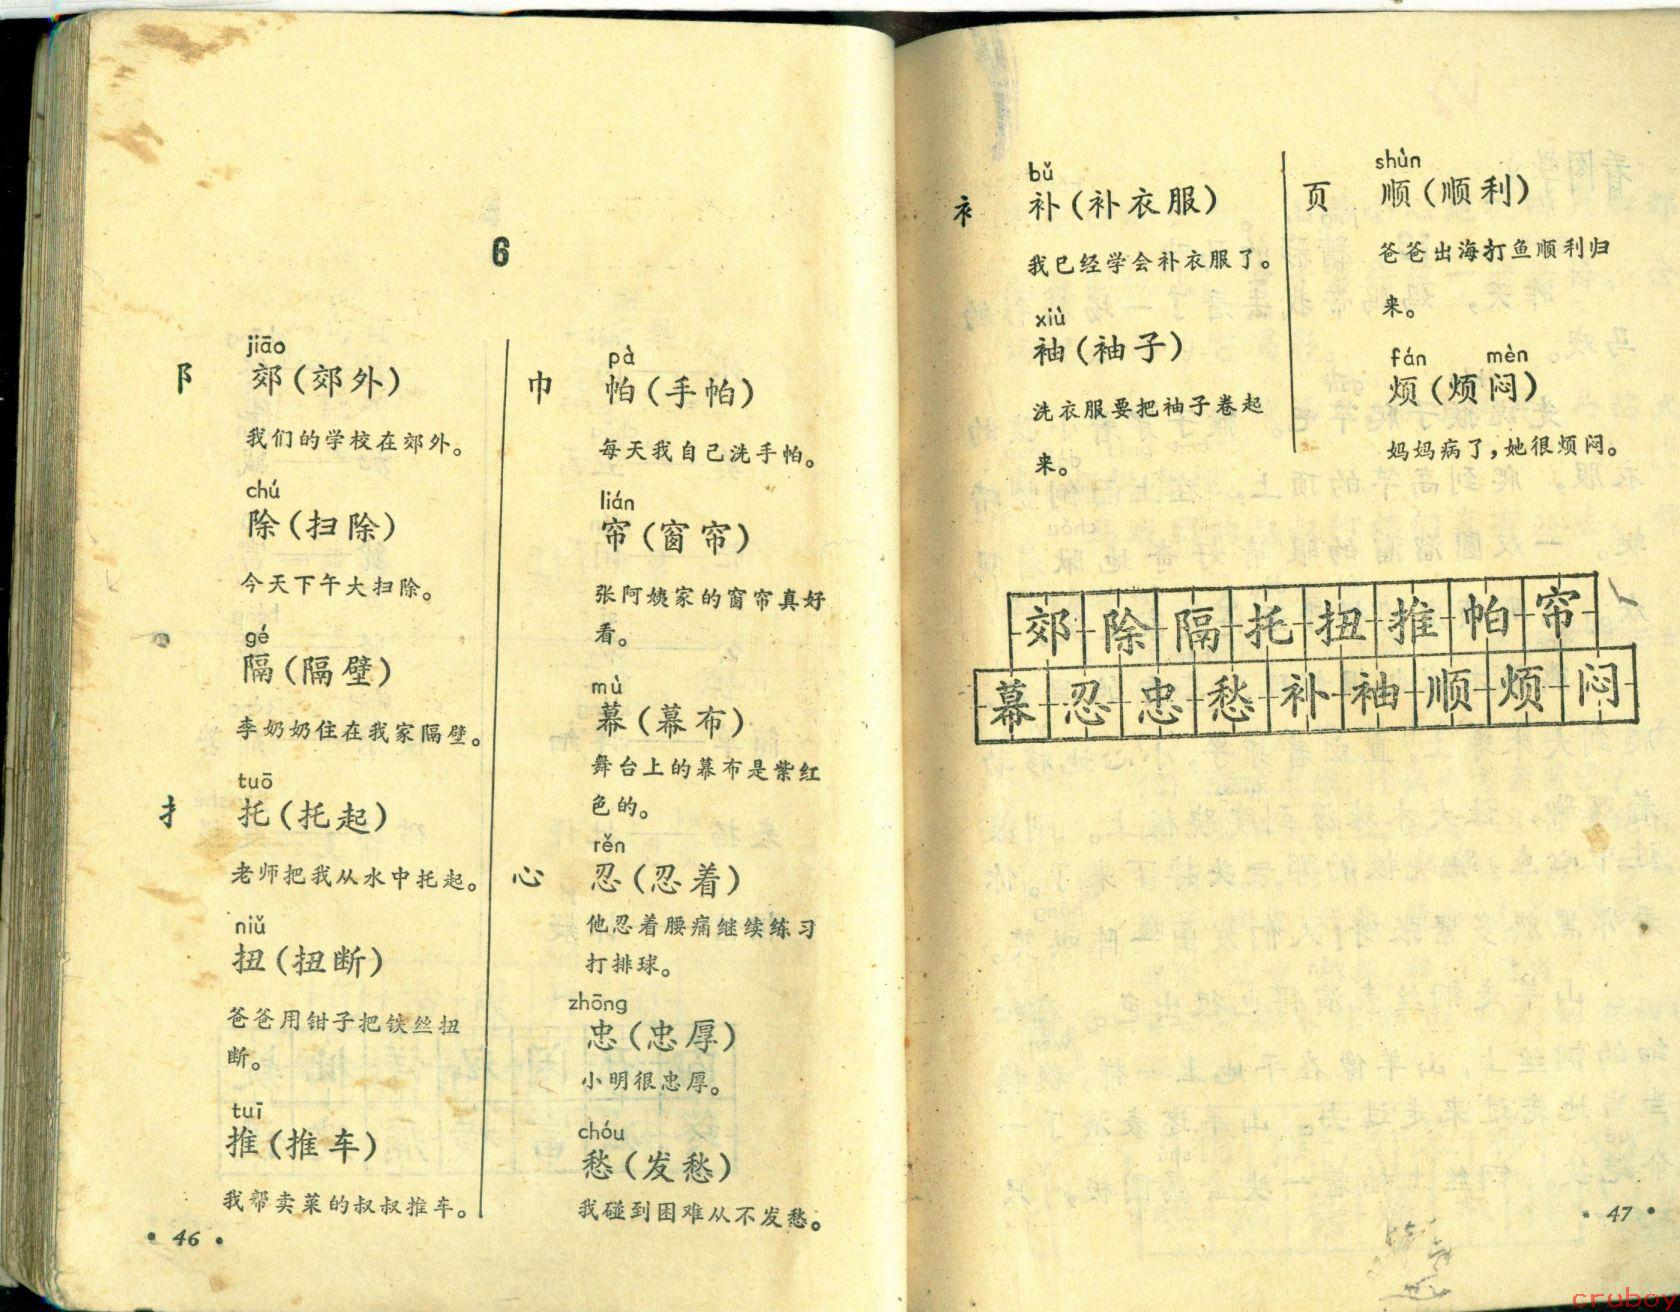 6
阝
jiāo
郊(郊外)
我们的学校在郊外。
chú
除(扫除)
今天下午大扫除。
gé
隔(隔壁)
李奶奶住在我家隔壁。
扌
tuō
托(托起)
老师把我从水中托起。
niǔ
扭(扭断)
爸爸用钳子把铁丝扭
断。
tuī
推(推车)
我帮卖菜的叔叔推车。
巾
pà
帕(手帕)
每天我自己洗手帕。
lián
帘(窗帘)
张阿姨家的窗帘真好
看。
mù
幕(幕布)
舞台上的幕布是紫红
色的。
心
rěn
忍(忍着)
他忍着腰痛继续练习
打排球。
zhōng
忠(忠厚)
小明很忠厚。
chóu
愁(发愁)
我碰到困难从不发愁。
• 46 •
衤
bǔ
补(补衣服)
我已经学会补衣服了。
xiù
袖(袖子)
洗衣服要把袖子卷起
来。
页
shùn
顺(顺利)
爸爸出海打鱼顺利归
来。
fán mèn
烦(烦闷)
妈妈病了,她很烦闷。
郊除隔托扭推帕帘
幕忍忠愁补袖顺烦闷
• 47 •
cruboy